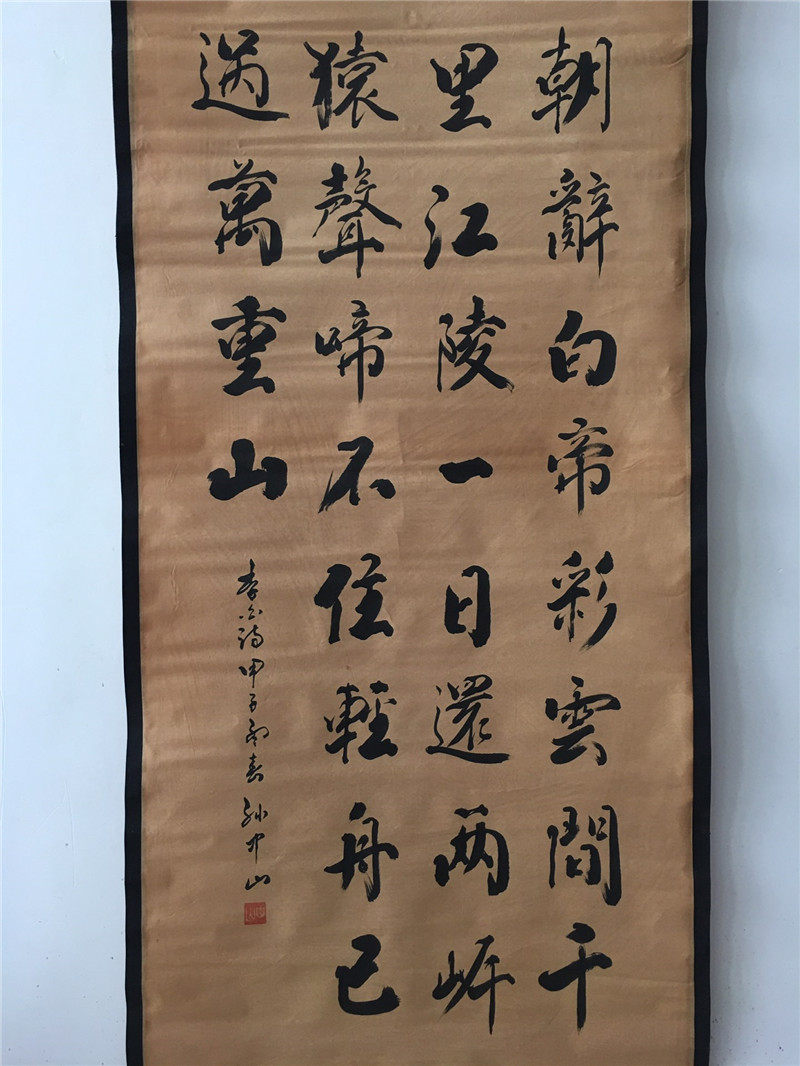 朝辭白帝彩雲間千
里江陵一日還两岸
猿聲啼不住輕舟已
過萬重山
李白詩甲子春孫中山